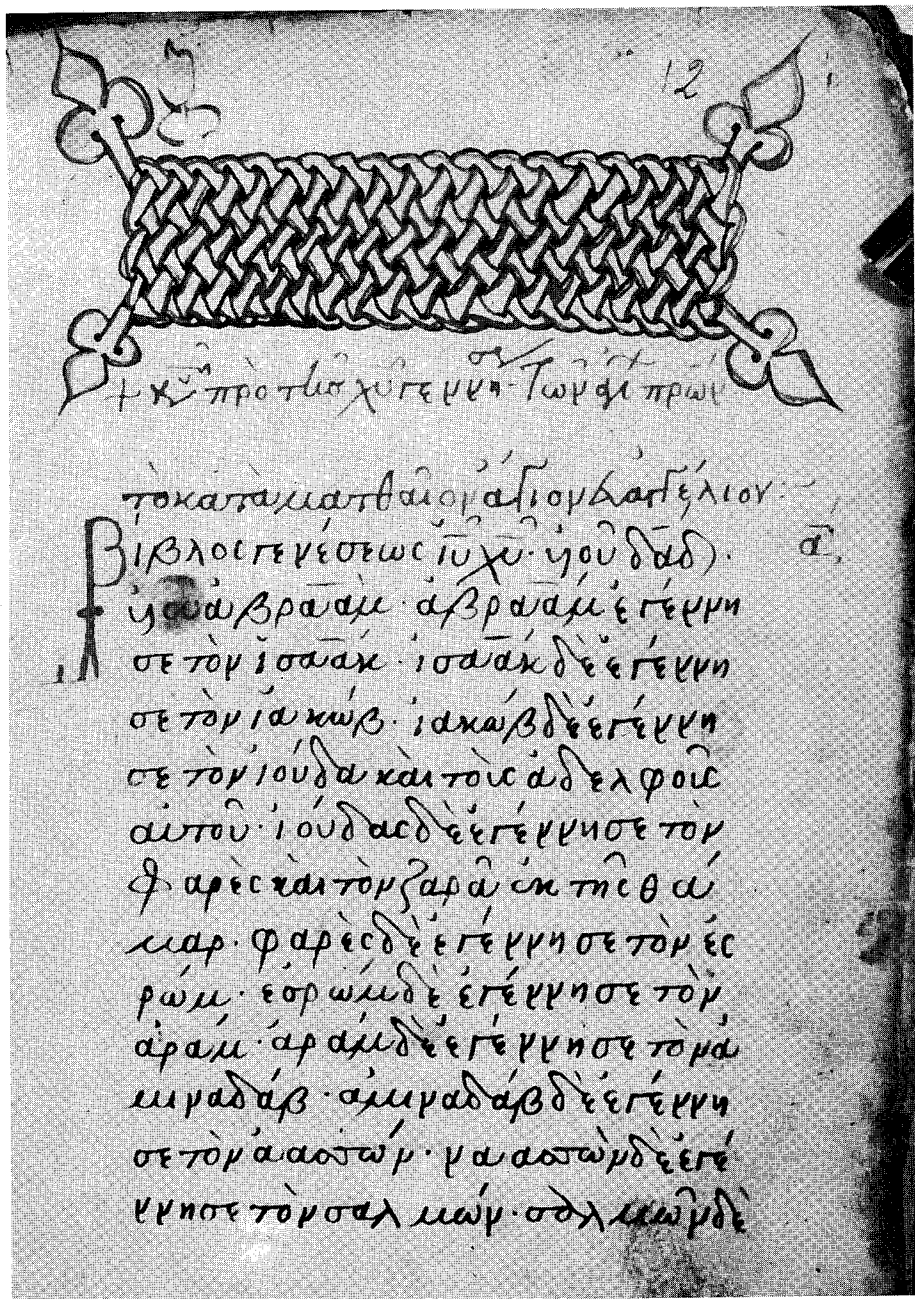 12
+ Κυ πρὸ τῆς χυ γεννη σε Τῶν ἁγι πρων
τὸ κατα ματθαιον ἅγιον εὐαγγέλιον
Βίβλος γενέσεως ἰυ χυ · υἱοῦ δαδ · α
υἱοῦ ἀβραάμ · ἀβραάμ ἐγέννη
σε τὸν ἰσαάκ · ἰσαάκ δὲ ἐγέννη
σε τὸν ἰακώβ · ἰακώβ δὲ ἐγέννη
σε τὸν ἰούδα καὶ τοὺς ἀδελφοὺς
αὐτοῦ · ἰούδας δὲ ἐγέννησε τὸν
φαρὲς καὶ τὸν ζαρὰ ἐκ τῆς θά
μαρ · φαρὲς δὲ ἐγέννησε τὸν ἐσ
ρώμ · ἐσρώμ δὲ ἐγέννησε τὸν
ἀράμ · ἀράμ δὲ ἐγέννησε τὸν ἀ
μιναδάβ · ἀμιναδάβ δὲ ἐγέννη
σε τὸν ἀασσών · ναασσὼν δὲ ἐγέ
ννησε τὸν σαλμών · σαλμὼν δὲ